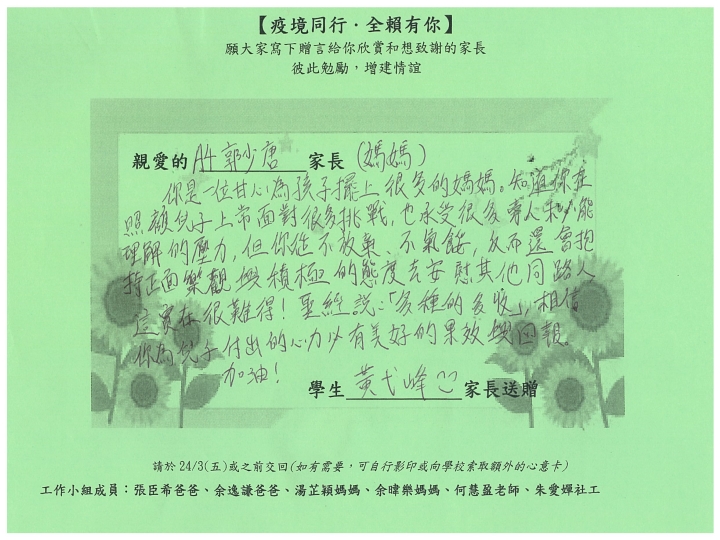 【疫境同行．全賴有你】
願大家寫下贈言給你欣賞和想致謝的家長
彼此勉勵，增建情誼
親愛的 A4 郭少唐 家長 (媽媽)
你是一位甘心為孩子擺上很多的媽媽。知道你在
照顧兒子上常面對很多挑戰，也承受很多旁人未必能
理解的壓力，但你從不放棄、不氣餒，反而還會抱
持正面樂觀與積極的態度去安慰其他同路人
這實在很難得！聖經說：「多種的多收」，相信
你為兒子付出的心力必有美好的果效與回報。
加油！
學生 黃弋峰 家長送贈
請於 24/3(五)或之前交回(如有需要，可自行影印或向學校索取額外的心意卡)
工作小組成員：張臣希爸爸、余逸謙爸爸、湯芷穎媽媽、余暐樂媽媽、何慧盈老師、朱愛嬋社工